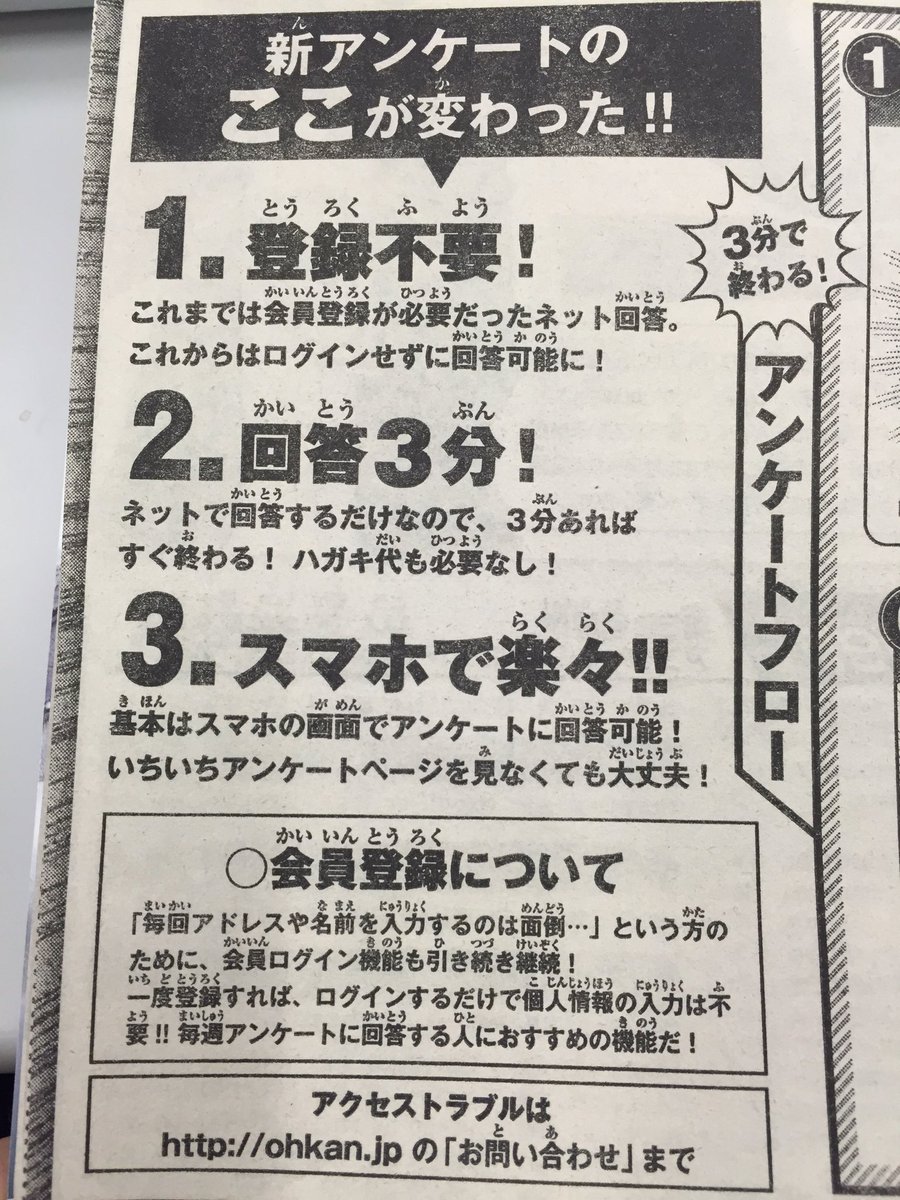 新アンケートの
ここが変わった!!
1.登録不要!
これまでは会員登録が必要だったネット回答。
これからはログインせずに回答可能に!
2.回答3分!
ネットで回答するだけなので、3分あれば
すぐ終わる! ハガキ代も必要なし!
3.スマホで楽々!!
基本はスマホの画面でアンケートに回答可能!
いちいちアンケートページを見なくても大丈夫!
○会員登録について
「毎回アドレスや名前を入力するのは面倒…」という方の
ために、会員ログイン機能も引き続き継続!
一度登録すれば、ログインするだけで個人情報の入力は不
要!! 毎週アンケートに回答する人におすすめの機能だ!
アクセストラブルは
http://ohkan.jp の「お問い合わせ」まで
3分で
終わる!
アンケートフロー
1